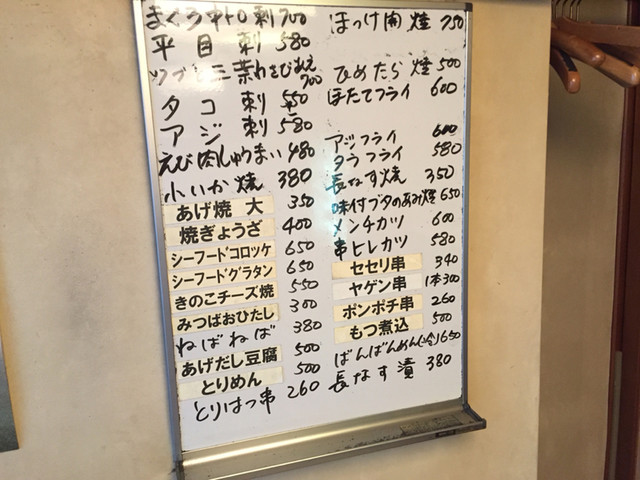 まぐろ中トロ刺 700
平目刺 580
ツブと三葉わさびあえ 700
タコ刺 550
アジ刺 580
えび肉しゅうまい 480
小いか焼 380
あげ焼 大 350
焼ぎょうざ 400
シーフードコロッケ 650
シーフードグラタン 650
きのこチーズ焼 550
みつばおひたし 300
ねばねば 380
あげだし豆腐 500
とりめん 500
とりはつ串 260
ほっけ開焼 750
ひめたら焼 500
ほたてフライ 600
アジフライ 600
タラフライ 580
長なす焼 350
味付ブタのあみ焼 650
メンチカツ 600
串ヒレカツ 580
セセリ串 340
ヤゲン串 1本300
ボンボチ串 260
もつ煮込 500
ばんばんめん(冷) 650
長なす漬 380